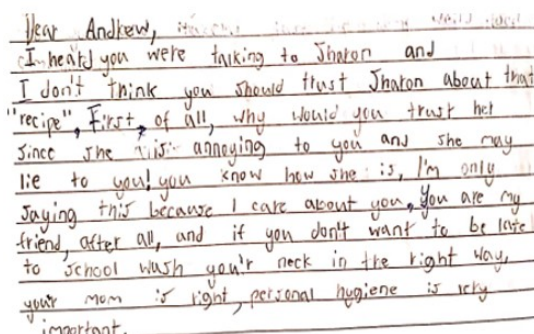 Dear Andrew,
I heard you were talking to Sharon and
I don't think you should trust Sharon about that
"recipe", First, of all, why would you trust her
since she is annoying to you and she may
lie to you! you know how she is, I'm only
saying this because I care about you, You are my
friend, after all, and if you don't want to be late
to school wash you'r neck in the right way,
your mom is right, personal hygiene is very
important.